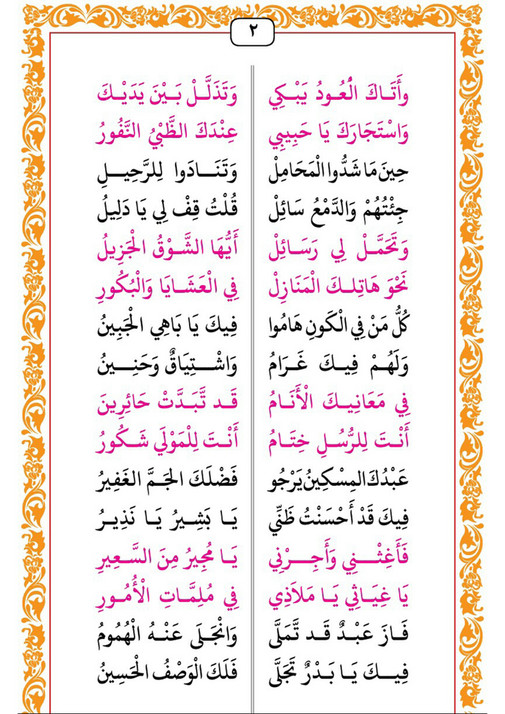 ٢
وَأَتَاكَ الْعُودُ يَبْكِي وَتَذَلَّـلْ بَـيْنَ يَدَيْـكَ
وَاسْتَجَارَكَ يَا حَبِيبِي عِنْدَكَ الظَّبْيُ النَّفُورُ
حِينَ مَا شَدُّوا الْمَحَامِلْ وَتَنَـادَوا لِلرَّحِيـلِ
جِئْتُهُمْ وَالدَّمْعُ سَائِلْ قُلْتُ قِفْ لِي يَا دَلِيلُ
وَتَحَمَّـلْ لِي رَسَائِلْ أَيُّهَا الشَّوْقُ الْجَزِيلُ
نَحْوَ هَاتِلـكَ الْمَنَازِلْ فِي الْعَشَايَا وَالْبُكُورِ
كُلُّ مَنْ فِي الْكَونِ هَامُوا فِيكَ يَا بَاهِي الْجَبِينُ
وَلَهُمْ فِيـكَ غَـرَامُ وَاشْـتِيَاقٌ وَحَنِـينُ
فِي مَعَانِيـكَ الْأَنَـامُ قَـد تَّبَدَّتْ حَائِرِينَ
أَنْتَ لِلرُّسُلِ خِتَـامُ أَنْتَ لِلْمَوْلَى شَـكُورُ
عَبْدُكَ الْمِسْكِينُ يَرْجُو فَضْلَكَ الْجَمَّ الْغَفِيرُ
فِيكَ قَدْ أَحْسَنْتُ ظَنِّي يَـا بَشِيرُ يَـا نَذِيـرُ
فَأَغِثْـنِـي وَأَجِـرْنِي يَا مُجِيرُ مِنَ السَّـعِيرِ
يَا غِيَاثِي يَـا مَلَاذِي فِي مُلِمَّـاتِ الْأُمُـورِ
فَـازَ عَبْـدٌ قَـد تَّمَلَّى وَانْجَلَى عَنْـهُ الْهُمُومُ
فِيـكَ يَـا بَـدْرٌ تَجَلَّى فَلَكَ الْوَصْفُ الْحَسِينُ